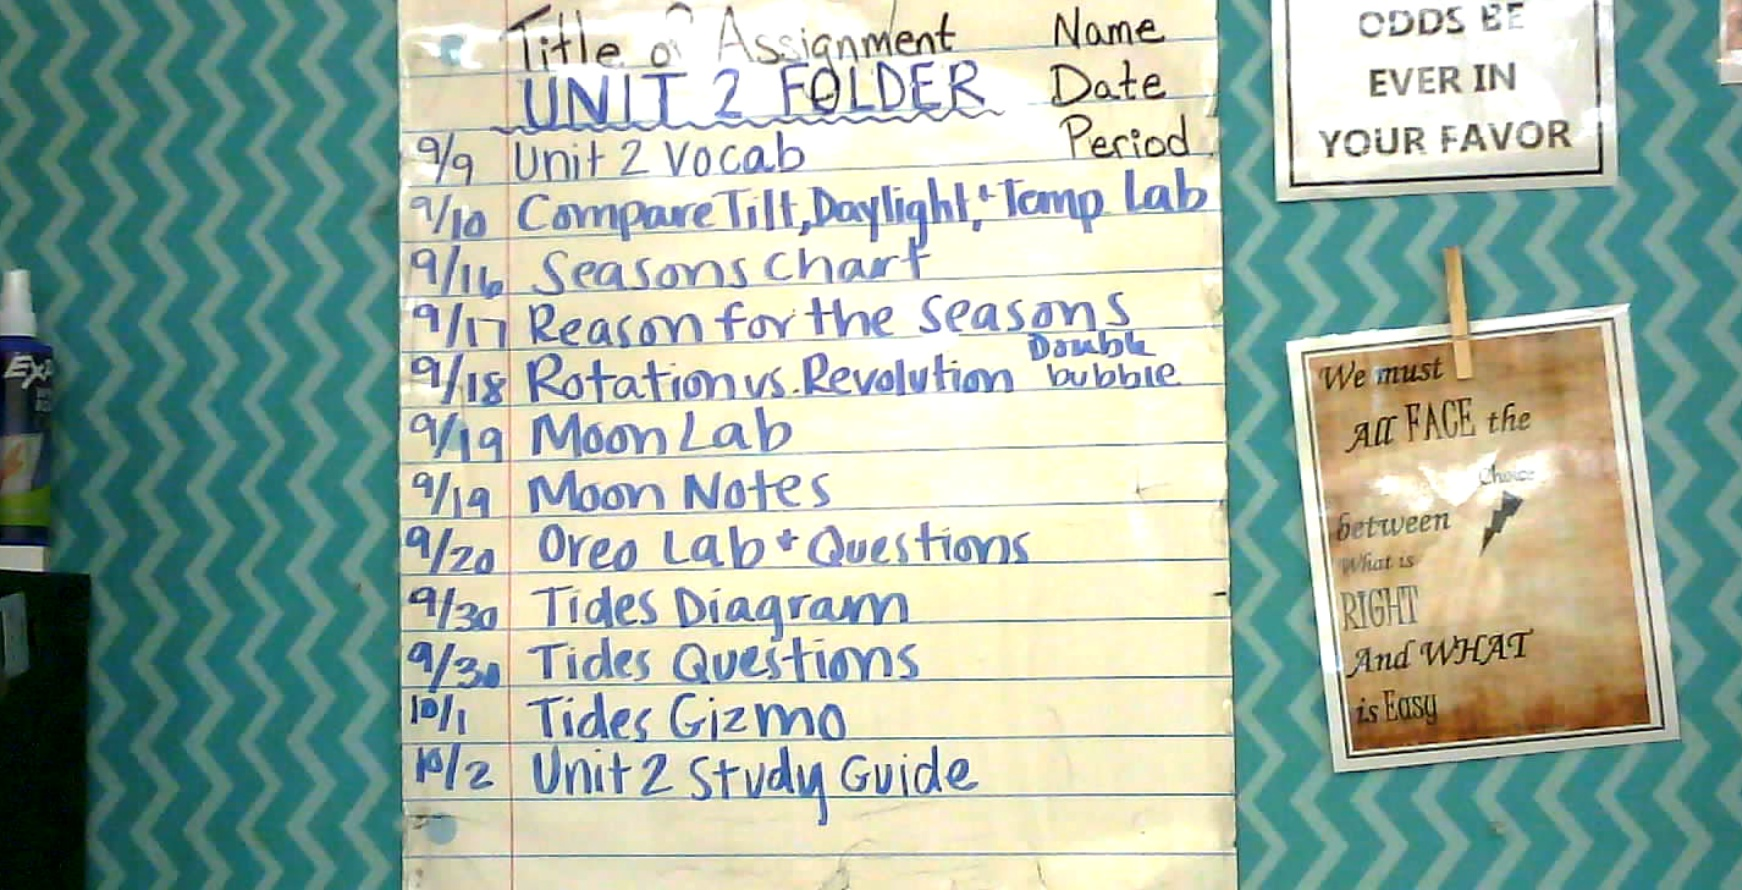 Title of Assignment Name
UNIT 2 FOLDER Date
Period
9/9 Unit 2 Vocab
9/10 Compare Tilt, Daylight, + Temp Lab
9/16 Seasons Chart
9/17 Reason for the Seasons
9/18 Rotation vs. Revolution Double bubble
9/19 Moon Lab
9/19 Moon Notes
9/20 Oreo Lab + Questions
9/30 Tides Diagram
9/30 Tides Questions
10/1 Tides Gizmo
10/2 Unit 2 Study Guide
ODDS BE
EVER IN
YOUR FAVOR
We must
All FACE the
Choice
between
What is
RIGHT
And WHAT
is Easy